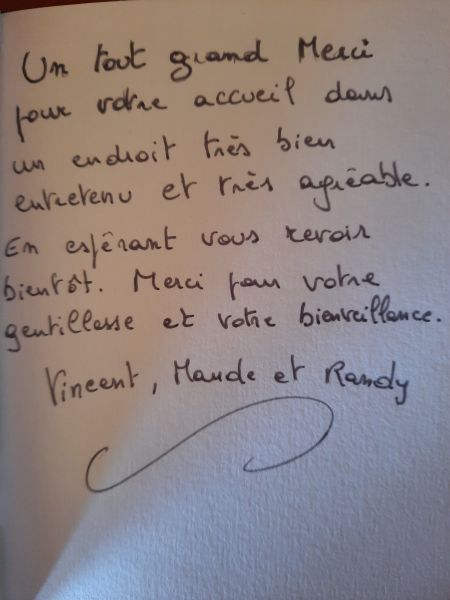 Un tout grand Merci
pour votre accueil dans
un endroit très bien
entretenu et très agréable.
En espérant vous revoir
bientôt. Merci pour votre
gentillesse et votre bienveillance.
Vincent, Maude et Randy